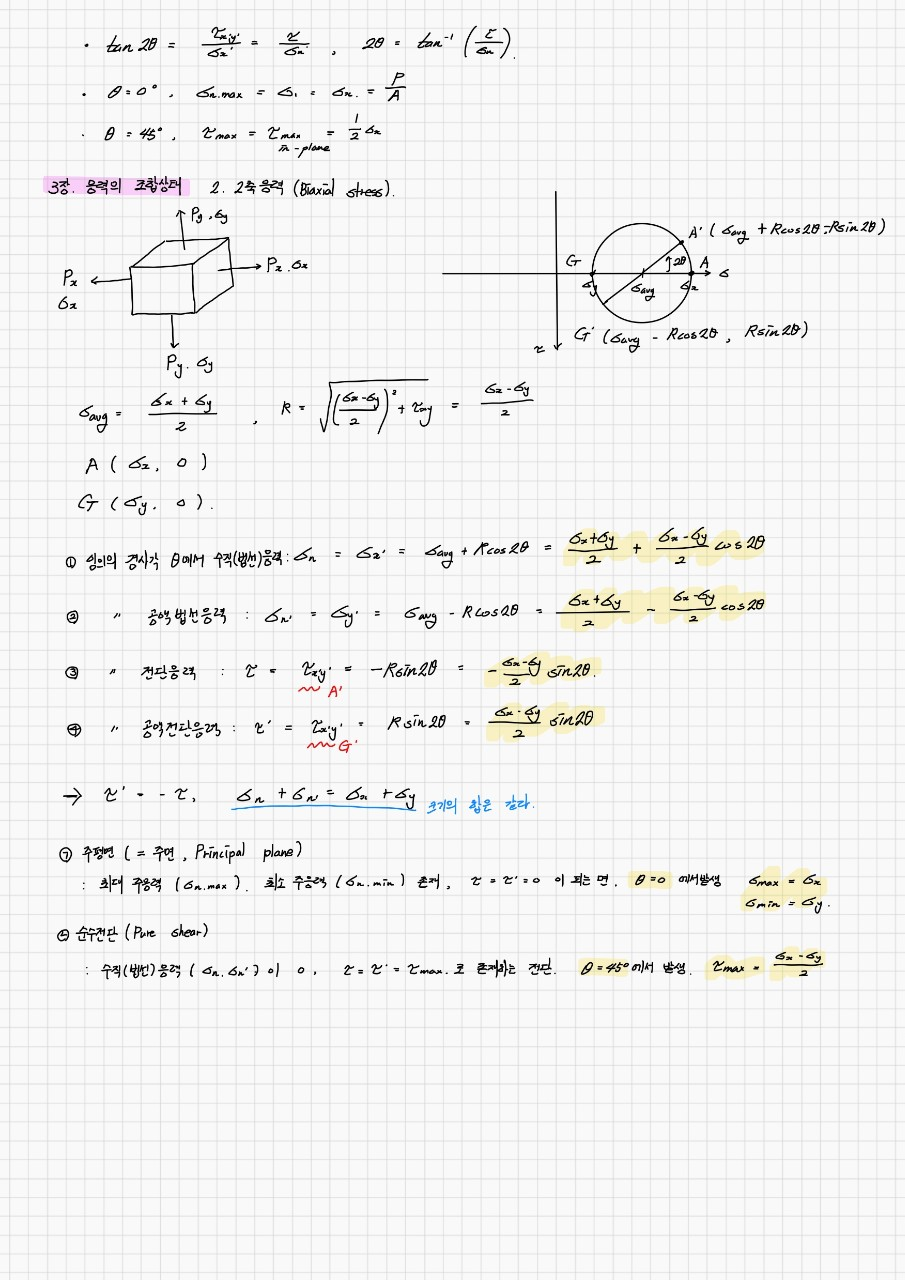 · tan 2θ = τx'y'/σx' = τ/σn , 2θ = tan⁻¹ (τ/σn).
· θ = 0° , σn.max = σ1 = σx = P/A
· θ = 45° , τmax = τmax in-plane = 1/2 σx
3장. 응력의 조합상태 2. 2축응력 (Biaxial stress).
Py, σy
Px, σx
Px
σx
Py, σy
A' (σavg + Rcos2θ, -Rsin2θ)
G
2θ
A
σ
σy
σavg
σx
G' (σavg - Rcos2θ , Rsin2θ)
τ
σavg = σx + σy/2 , R = √((σx-σy/2)² + τxy) = σx-σy/2
A ( σx, 0 )
G ( σy, 0 ).
① 임의의 경사각 θ에서 수직(법선)응력 : σn = σx' = σavg + Rcos2θ = σx+σy/2 + σx-σy/2 cos2θ
② 〃 공액법선응력 : σn' = σy' = σavg - Rcos2θ = σx+σy/2 - σx-σy/2 cos2θ
③ 〃 전단응력 : τ = τx'y' = -Rsin2θ = - σx-σy/2 sin2θ.
A'
④ 〃 공액전단응력 : τ' = τx'y' = Rsin2θ = σx-σy/2 sin2θ
G'
→ τ' = -τ, σn + σn' = σx + σy 크기의 합은 같다.
㉠ 주평면 ( = 주면 , Principal plane)
: 최대 주응력 (σn.max), 최소 주응력 (σn.min) 존재, τ = τ' = 0 이 되는 면. θ = 0 에서발생 σmax = σx
σmin = σy.
㉡ 순수전단 (Pure shear)
: 수직(법선)응력 (σn, σn') 이 0, τ = τ' = τmax. 로 존재하는 전단. θ = 45° 에서 발생. τmax = σx-σy/2